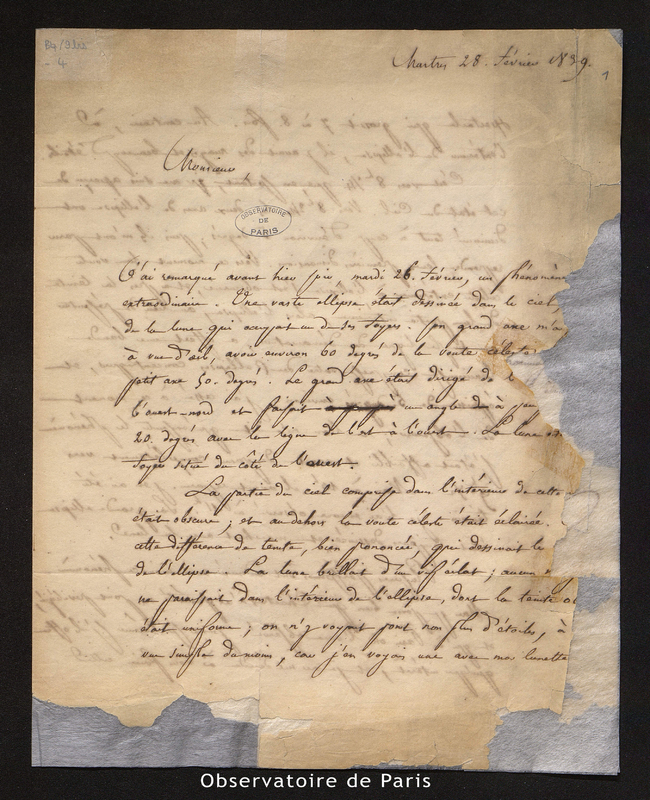 B4/
- 4
Chartres 28. février 1839.
1
Monsieur
OBSERVATOIRE
DE
PARIS
J'ai remarqué avant hier soir, mardi 26. février, un phénomène
extraordinaire. Une vaste ellipse était dessinée dans le ciel,
de la lune qui occupait un de ses foyers. Son grand axe m'a
à vue d'œil, avoir environ 60 degrés de la voute céleste
petit axe 50. degrés. Le grand axe était dirigé de l
l'ouest-nord et faisait un angle de à peu
20. degrés avec la ligne de l'est à l'ouest. La lune
foyer situé du côté de l'ouest.
La partie du ciel comprise dans l'intérieur de cette
était obscure; et au dehors la voute céleste était éclairée.
cette différence de teinte, bien prononcée, qui dessinait le
de l'ellipse. La lune brillait d'un vif éclat; aucun
ne paraissait dans l'intérieur de l'ellipse, dont la teinte
était uniforme; on n'y voyait point non plus d'étoiles, à
vue simple du moins, car j'en voyais une avec ma lunette
Observatoire de Paris